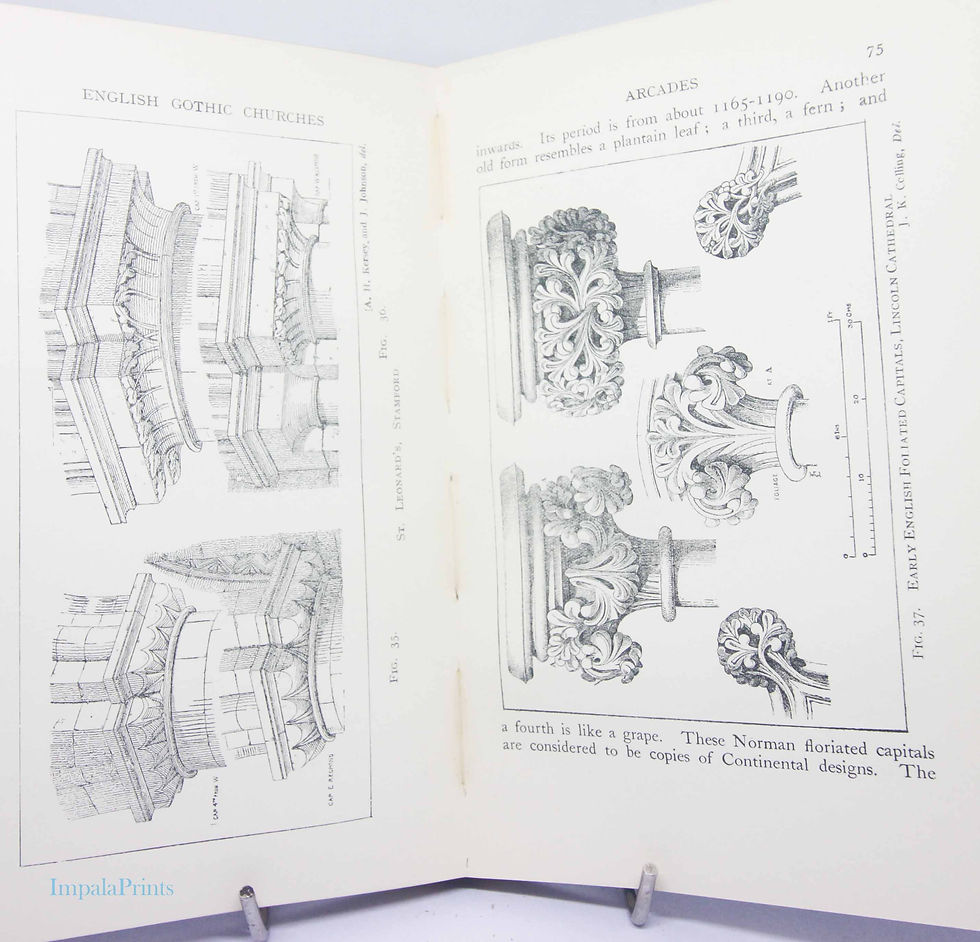 ENGLISH GOTHIC CHURCHES
CAP
[A. H. Kersey and J. Johnson, del.
FIG. 35.
ST. LEONARD'S, STAMFORD
FIG. 36.
CAP 4TH FROM W
CAP E. RESPOND
ARCADES
75
inwards. Its period is from about 1165-1190. Another
old form resembles a plantain leaf; a third, a fern; and
FOLIAGE
AT A
1 Ft
6 Ins
0
30 Cms
20
10
0
FIG. 37. EARLY ENGLISH FOLIATED CAPITALS, LINCOLN CATHEDRAL
J. K. Colling, Del.
a fourth is like a grape. These Norman floriated capitals
are considered to be copies of Continental designs. The
ImpalaPrints